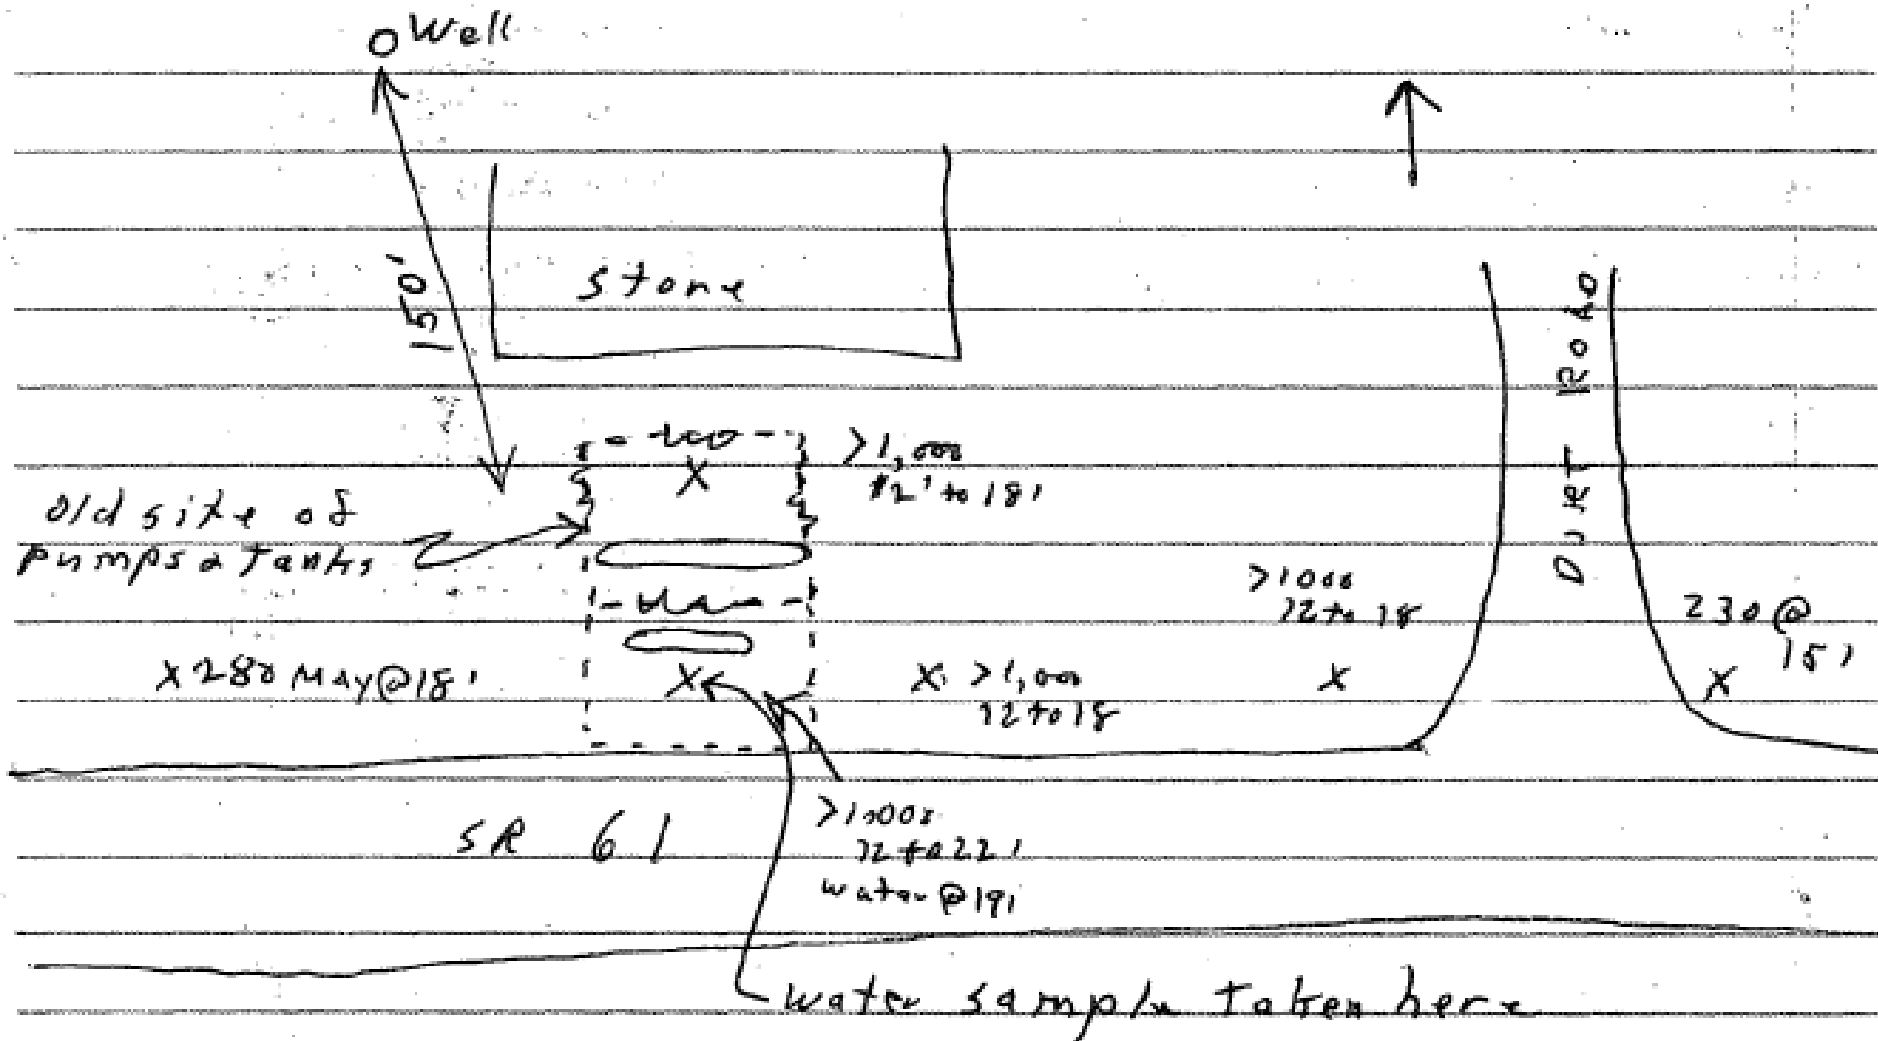 Well
150'
Store
>1,000
12' to 18'
old site of
pumps & tanks
>1000
12 to 18
DIRT ROAD
230 @
15'
X 280 MAX @ 18'
X
X >1,000
12 to 18
X
X
SR 61
>1,000
12 to 22'
water @ 19'
water sample taken here